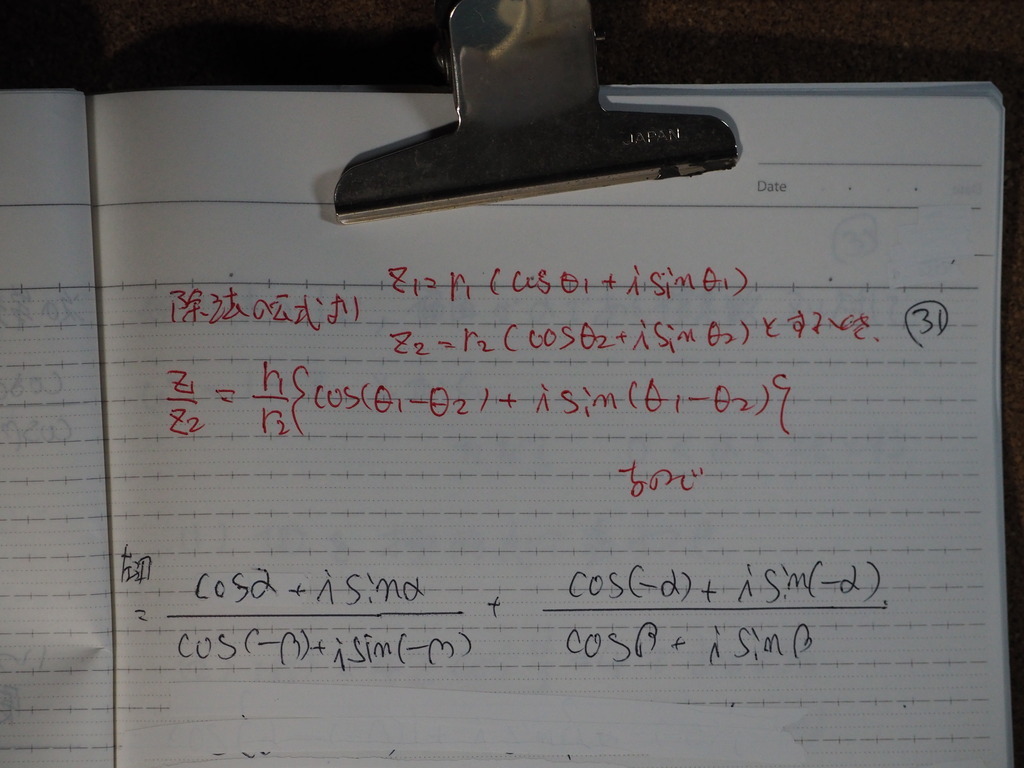 JAPAN
Date
z₁=r₁(cosθ₁+isinθ₁)
除法の公式より
z₂=r₂(cosθ₂+isinθ₂)とするとき、 ㉛
z₁/z₂ = r₁/r₂{cos(θ₁-θ₂)+isin(θ₁-θ₂)}
なので
左辺
= (cosα+isinα)/(cos(-β)+isin(-β)) + (cos(-α)+isin(-α))/(cosβ+isinβ)